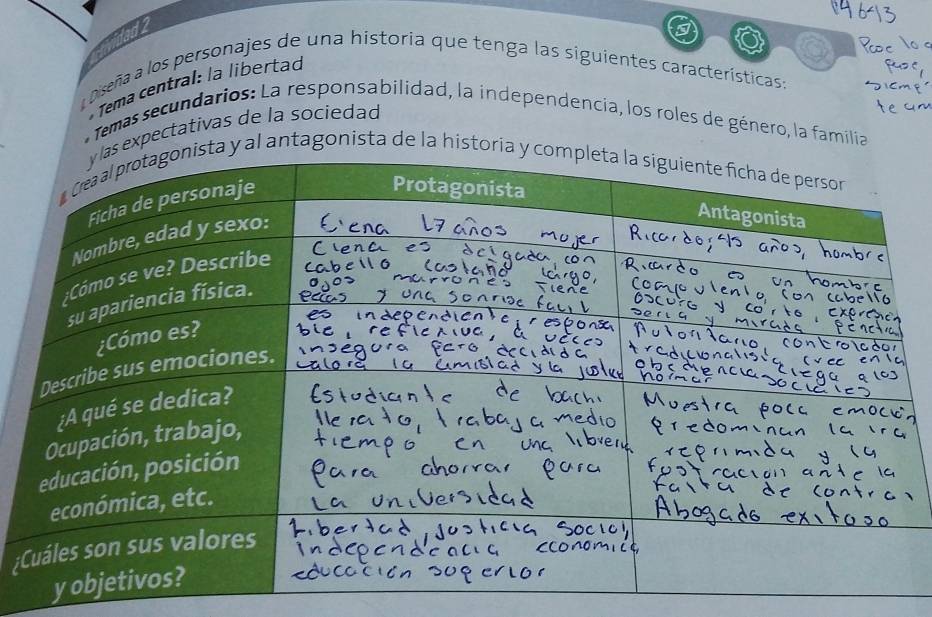 Actividad 2
Diseña a los personajes de una historia que tenga las siguientes características:
• Tema central: la libertad
• Temas secundarios: La responsabilidad, la independencia, los roles de género, la familia
y las expectativas de la sociedad
Crea al protagonista y al antagonista de la historia y completa la siguiente ficha de person
Ficha de personaje
Protagonista
Antagonista
Nombre, edad y sexo:
Elena 17 años mujer
Ricardo, 45 años, hombre
¿Cómo se ve? Describe
su apariencia física.
Elena es delgada, con
cabello castaño largo,
ojos marrones Tiene
pecas y una sonrisa facil
Ricardo es un hombre
corpulento, con cabello
oscuro y corto, expresion
seria y mirada penetra
¿Cómo es?
Describe sus emociones.
es independiente, responsa
ble, reflexiva, a veces
insegura pero decidida
valora la amistad y la
Autoritario controlador
tradicionalista cree en la
obediencia ciega a los
normas sociales
¿A qué se dedica?
Ocupación, trabajo,
educación, posición
económica, etc.
Estudiante de bachi
llerato, trabaja medio
tiempo en una libreria
para ahorrar para
la universidad
Muestra poca emoción
predominan la ira
reprimida y la
frustracion ante la
falta de control
Abogado exitoso
¿Cuáles son sus valores
y objetivos?
Libertad, justicia social,
independencia economica
educación superior